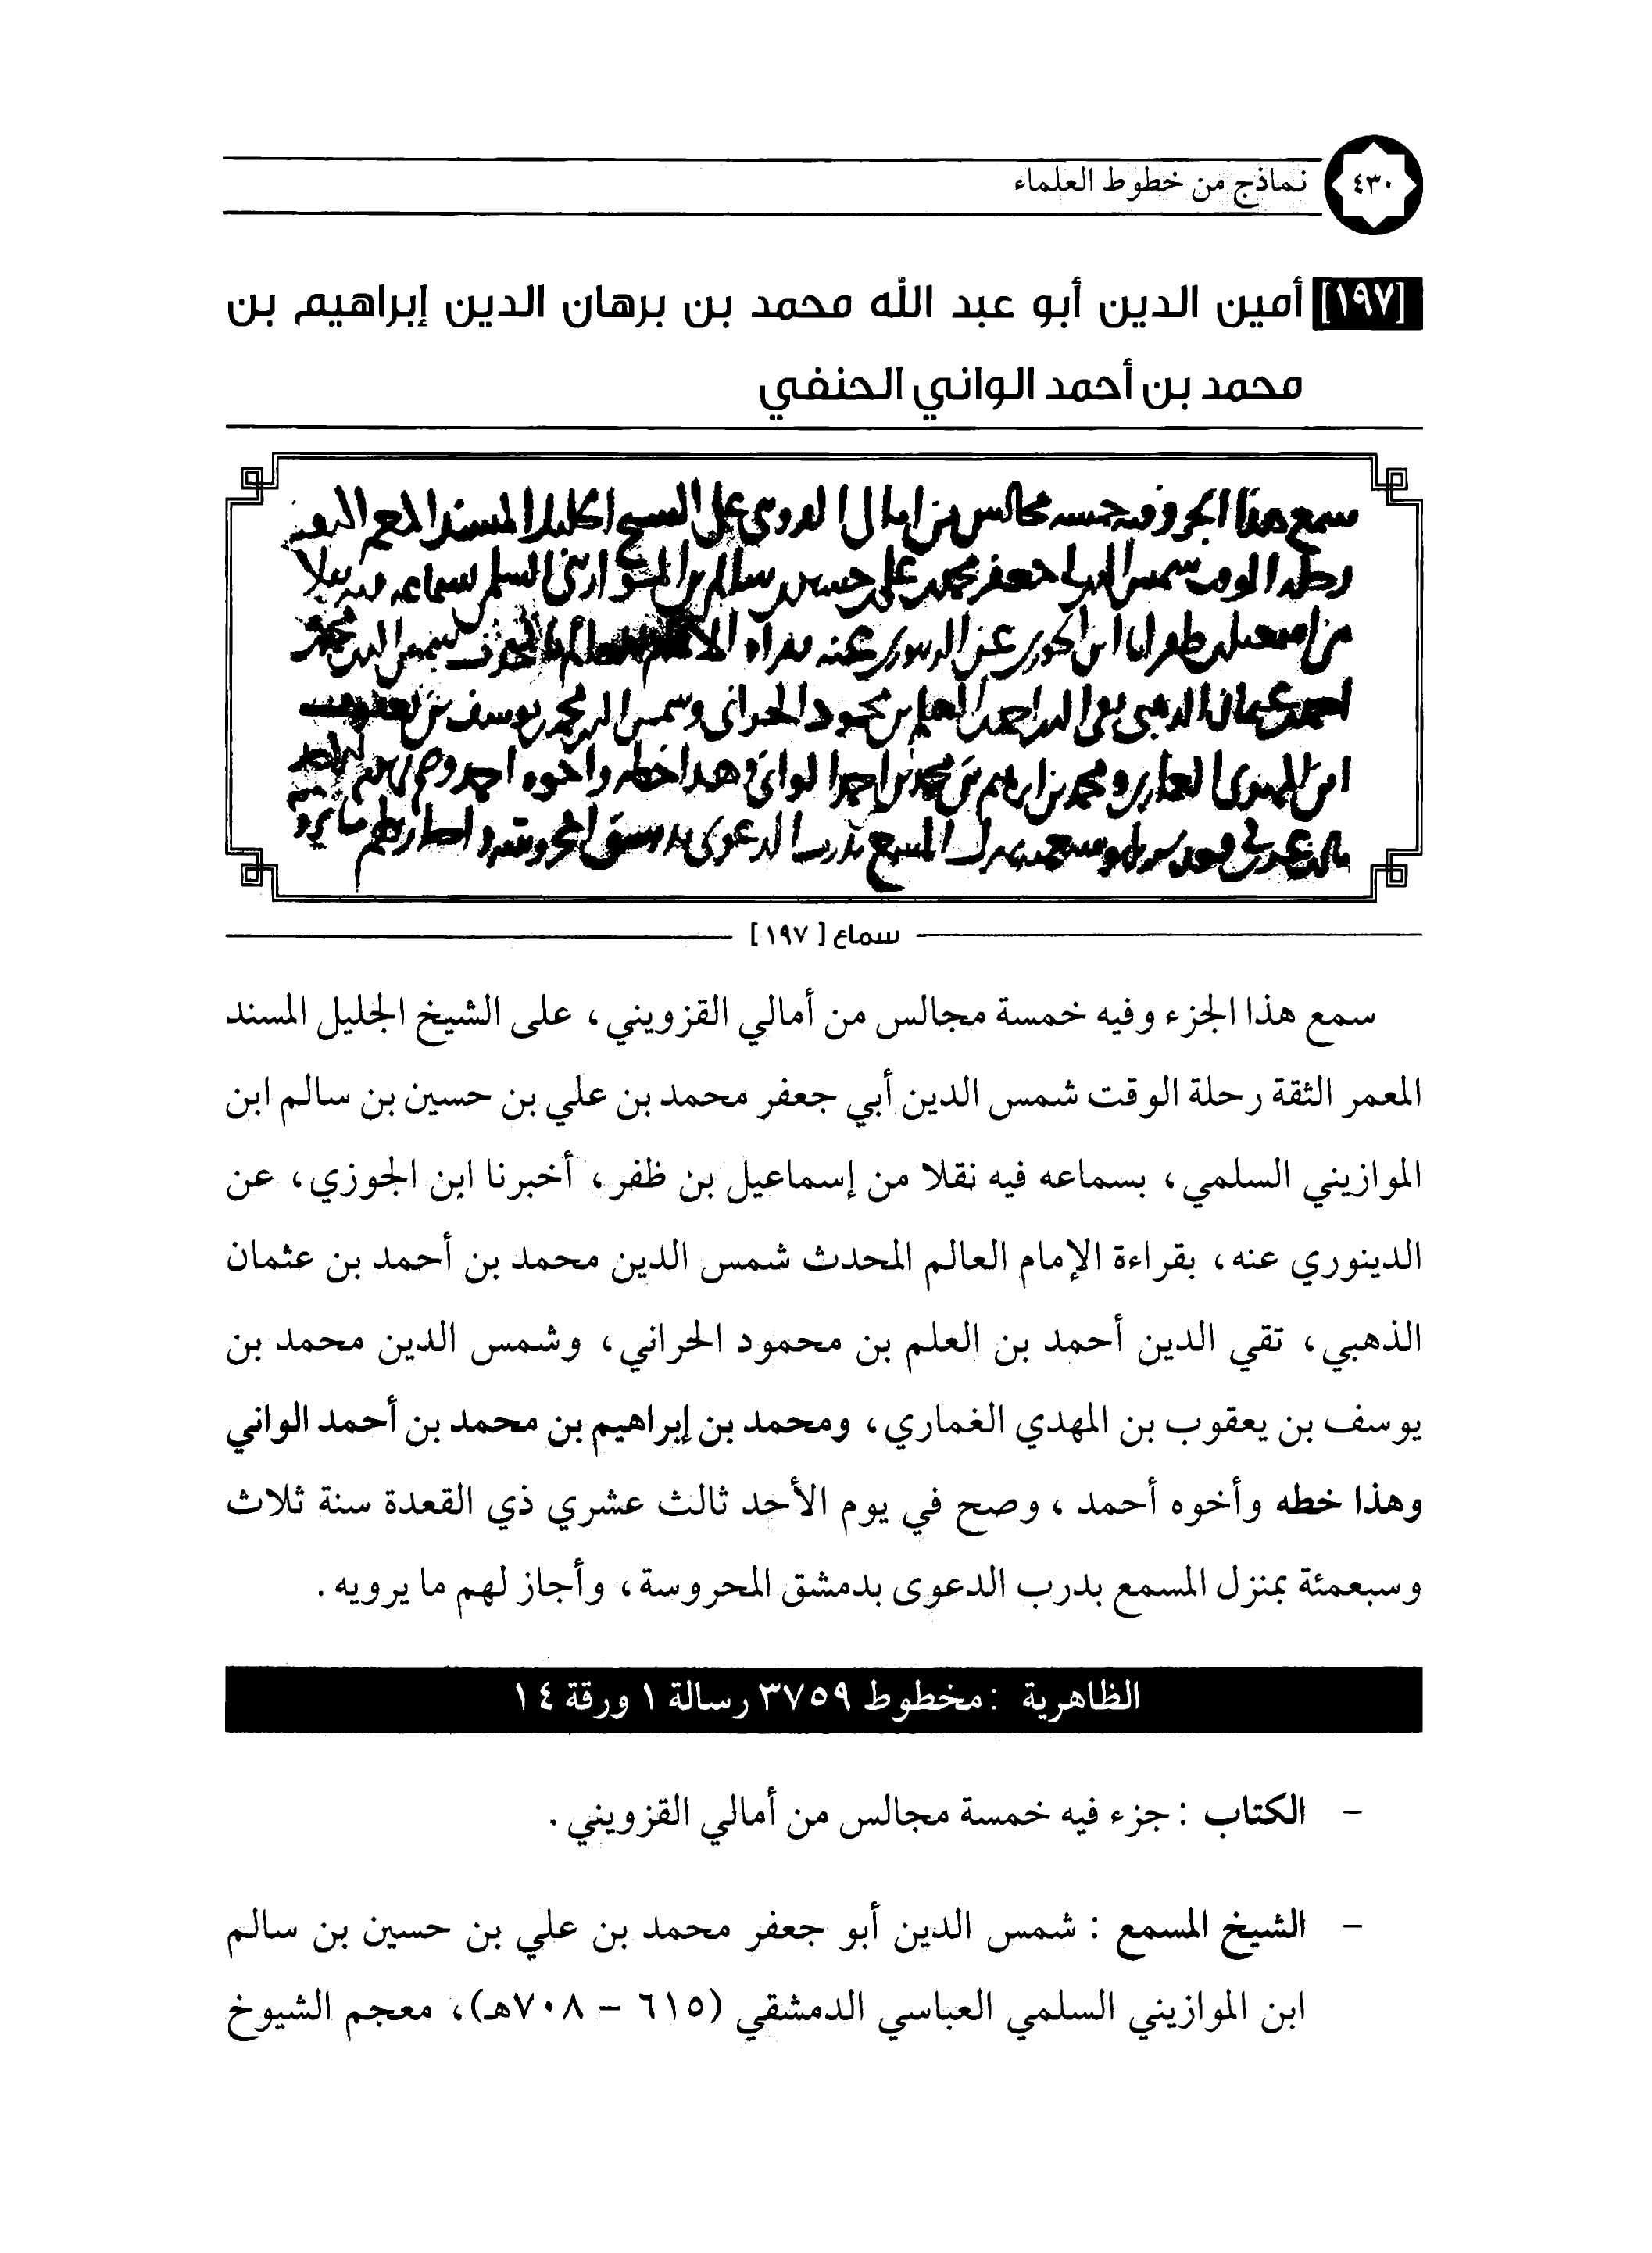 ٤٣٠
نماذج من خطوط العلماء
[١٩٧] أمين الدين أبو عبد الله محمد بن برهان الدين إبراهيم بن
محمد بن أحمد الواني الحنفي
سمع هذا الجزء وفيه خمسة مجالس من أمالي القزويني على الشيخ الجليل المسند المعمر الثقة
رحلة الوقت شمس الدين أبي جعفر محمد بن علي بن حسين بن سالم بن الموازيني السلمي بسماعه فيه نقلا
سماع [١٩٧]
سمع هذا الجزء وفيه خمسة مجالس من أمالي القزويني، على الشيخ الجليل المسند
المعمر الثقة رحلة الوقت شمس الدين أبي جعفر محمد بن علي بن حسين بن سالم ابن
الموازيني السلمي، بسماعه فيه نقلا من إسماعيل بن ظفر، أخبرنا ابن الجوزي، عن
الدينوري عنه، بقراءة الإمام العالم المحدث شمس الدين محمد بن أحمد بن عثمان
الذهبي، تقي الدين أحمد بن العلم بن محمود الحراني، وشمس الدين محمد بن
يوسف بن يعقوب بن المهدي الغماري، ومحمد بن إبراهيم بن محمد بن أحمد الواني
وهذا خطه وأخوه أحمد، وصح في يوم الأحد ثالث عشري ذي القعدة سنة ثلاث
وسبعمئة بمنزل المسمع بدرب الدعوى بدمشق المحروسة، وأجاز لهم ما يرويه.
الظاهرية : مخطوط ٣٧٥٩ رسالة ١ ورقة ١٤
- الكتاب : جزء فيه خمسة مجالس من أمالي القزويني.
- الشيخ المسمع : شمس الدين أبو جعفر محمد بن علي بن حسين بن سالم
ابن الموازيني السلمي العباسي الدمشقي (٦١٥ - ٧٠٨هـ)، معجم الشيوخ